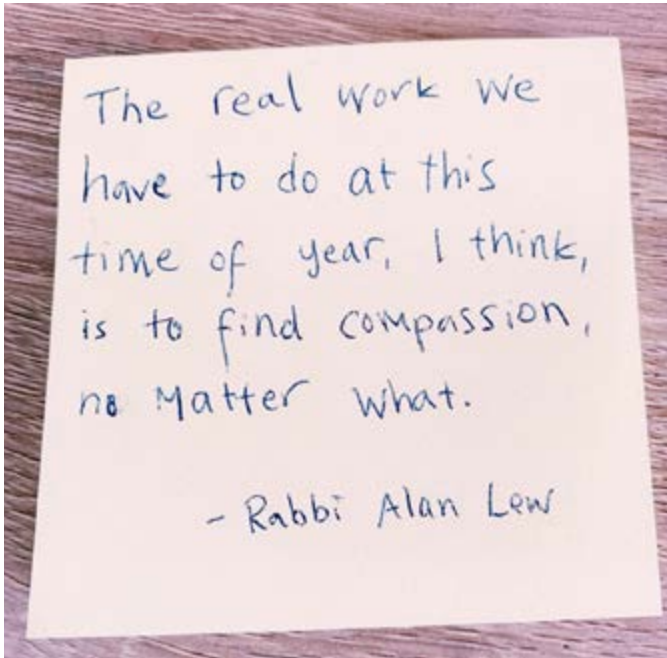 The real work we
have to do at this
time of year, I think,
is to find compassion,
no matter what.
- Rabbi Alan Lew